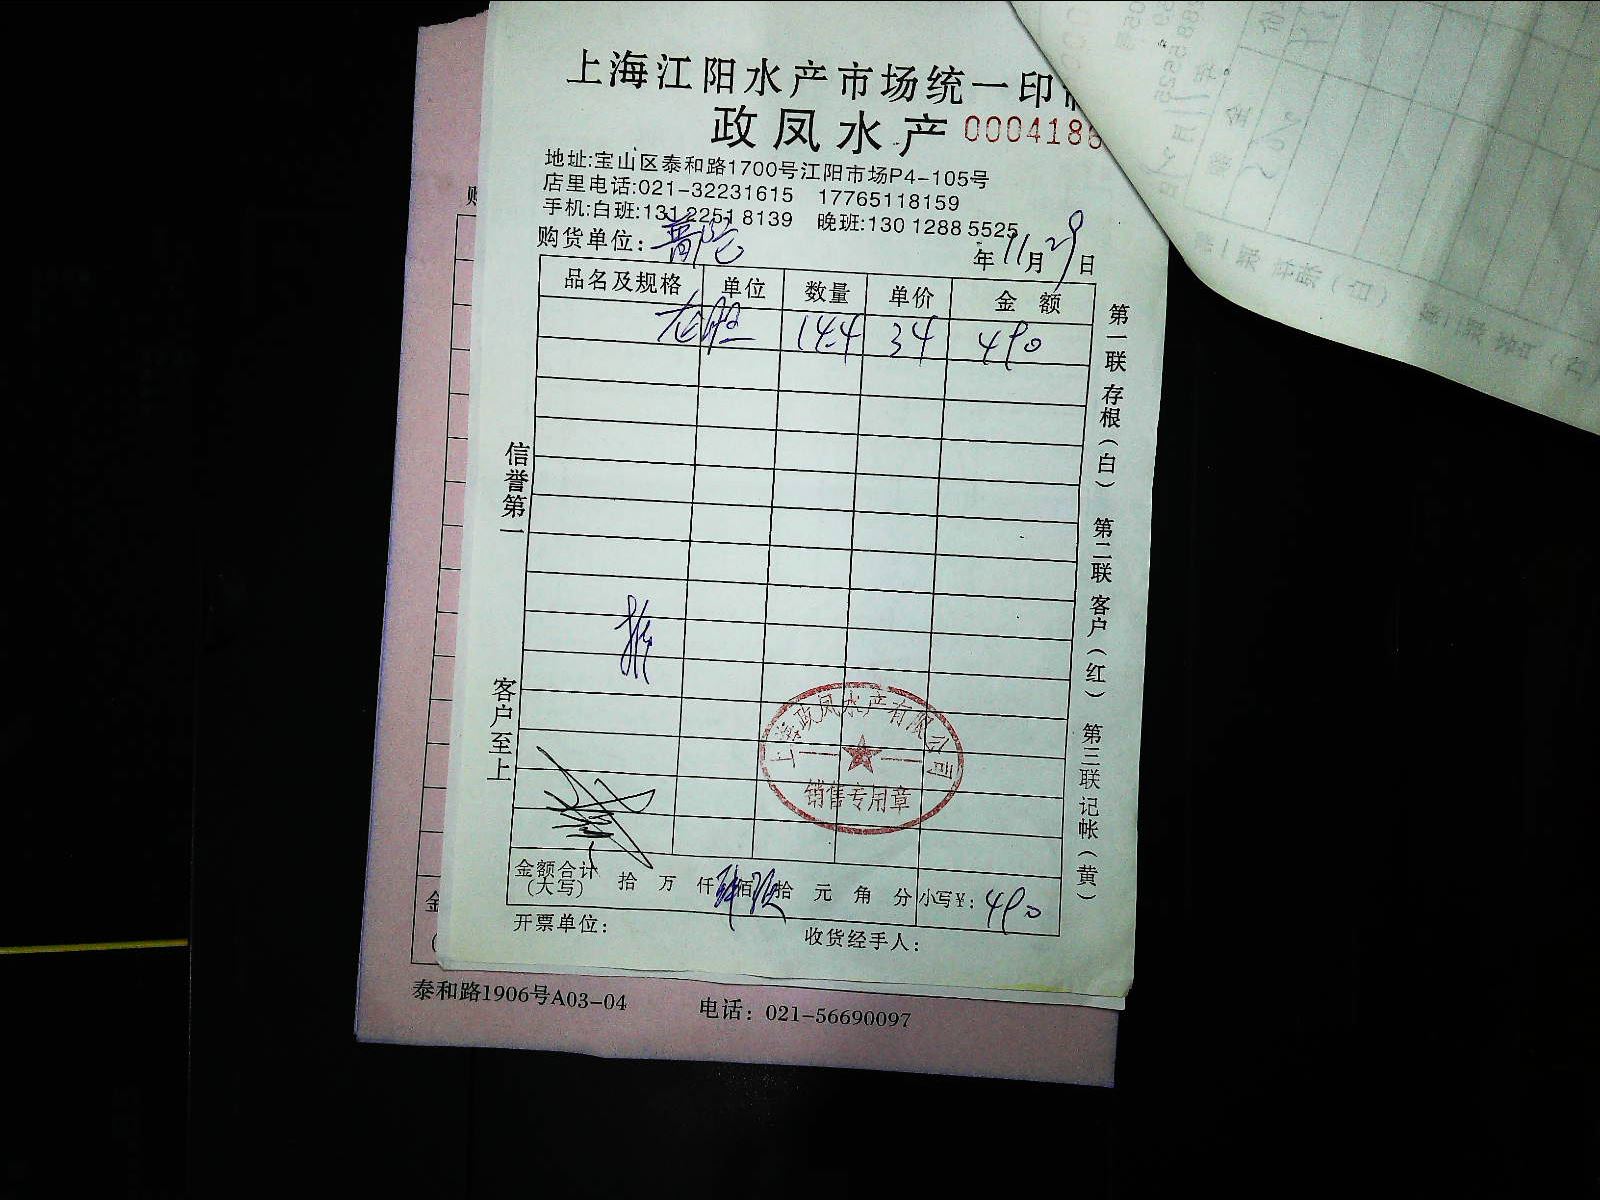 上海江阳水产市场统一印
政凤水产 0004186
地址:宝山区泰和路1700号江阳市场P4-105号
店里电话:021-32231615 17765118159
手机:白班:131 2251 8139 晚班:130 1288 5525
购货单位:
年11月29日
品名及规格 单位 数量 单价 金额
14.4 34 490
信誉第一
客户至上
第一联存根(白) 第二联客户(红) 第三联记帐(黄)
上海政凤水产有限公司
销售专用章
金额合计
(大写) 拾 万 仟 佰 拾 元 角 分 小写¥: 490
开票单位: 收货经手人:
泰和路1906号A03-04 电话: 021-56690097